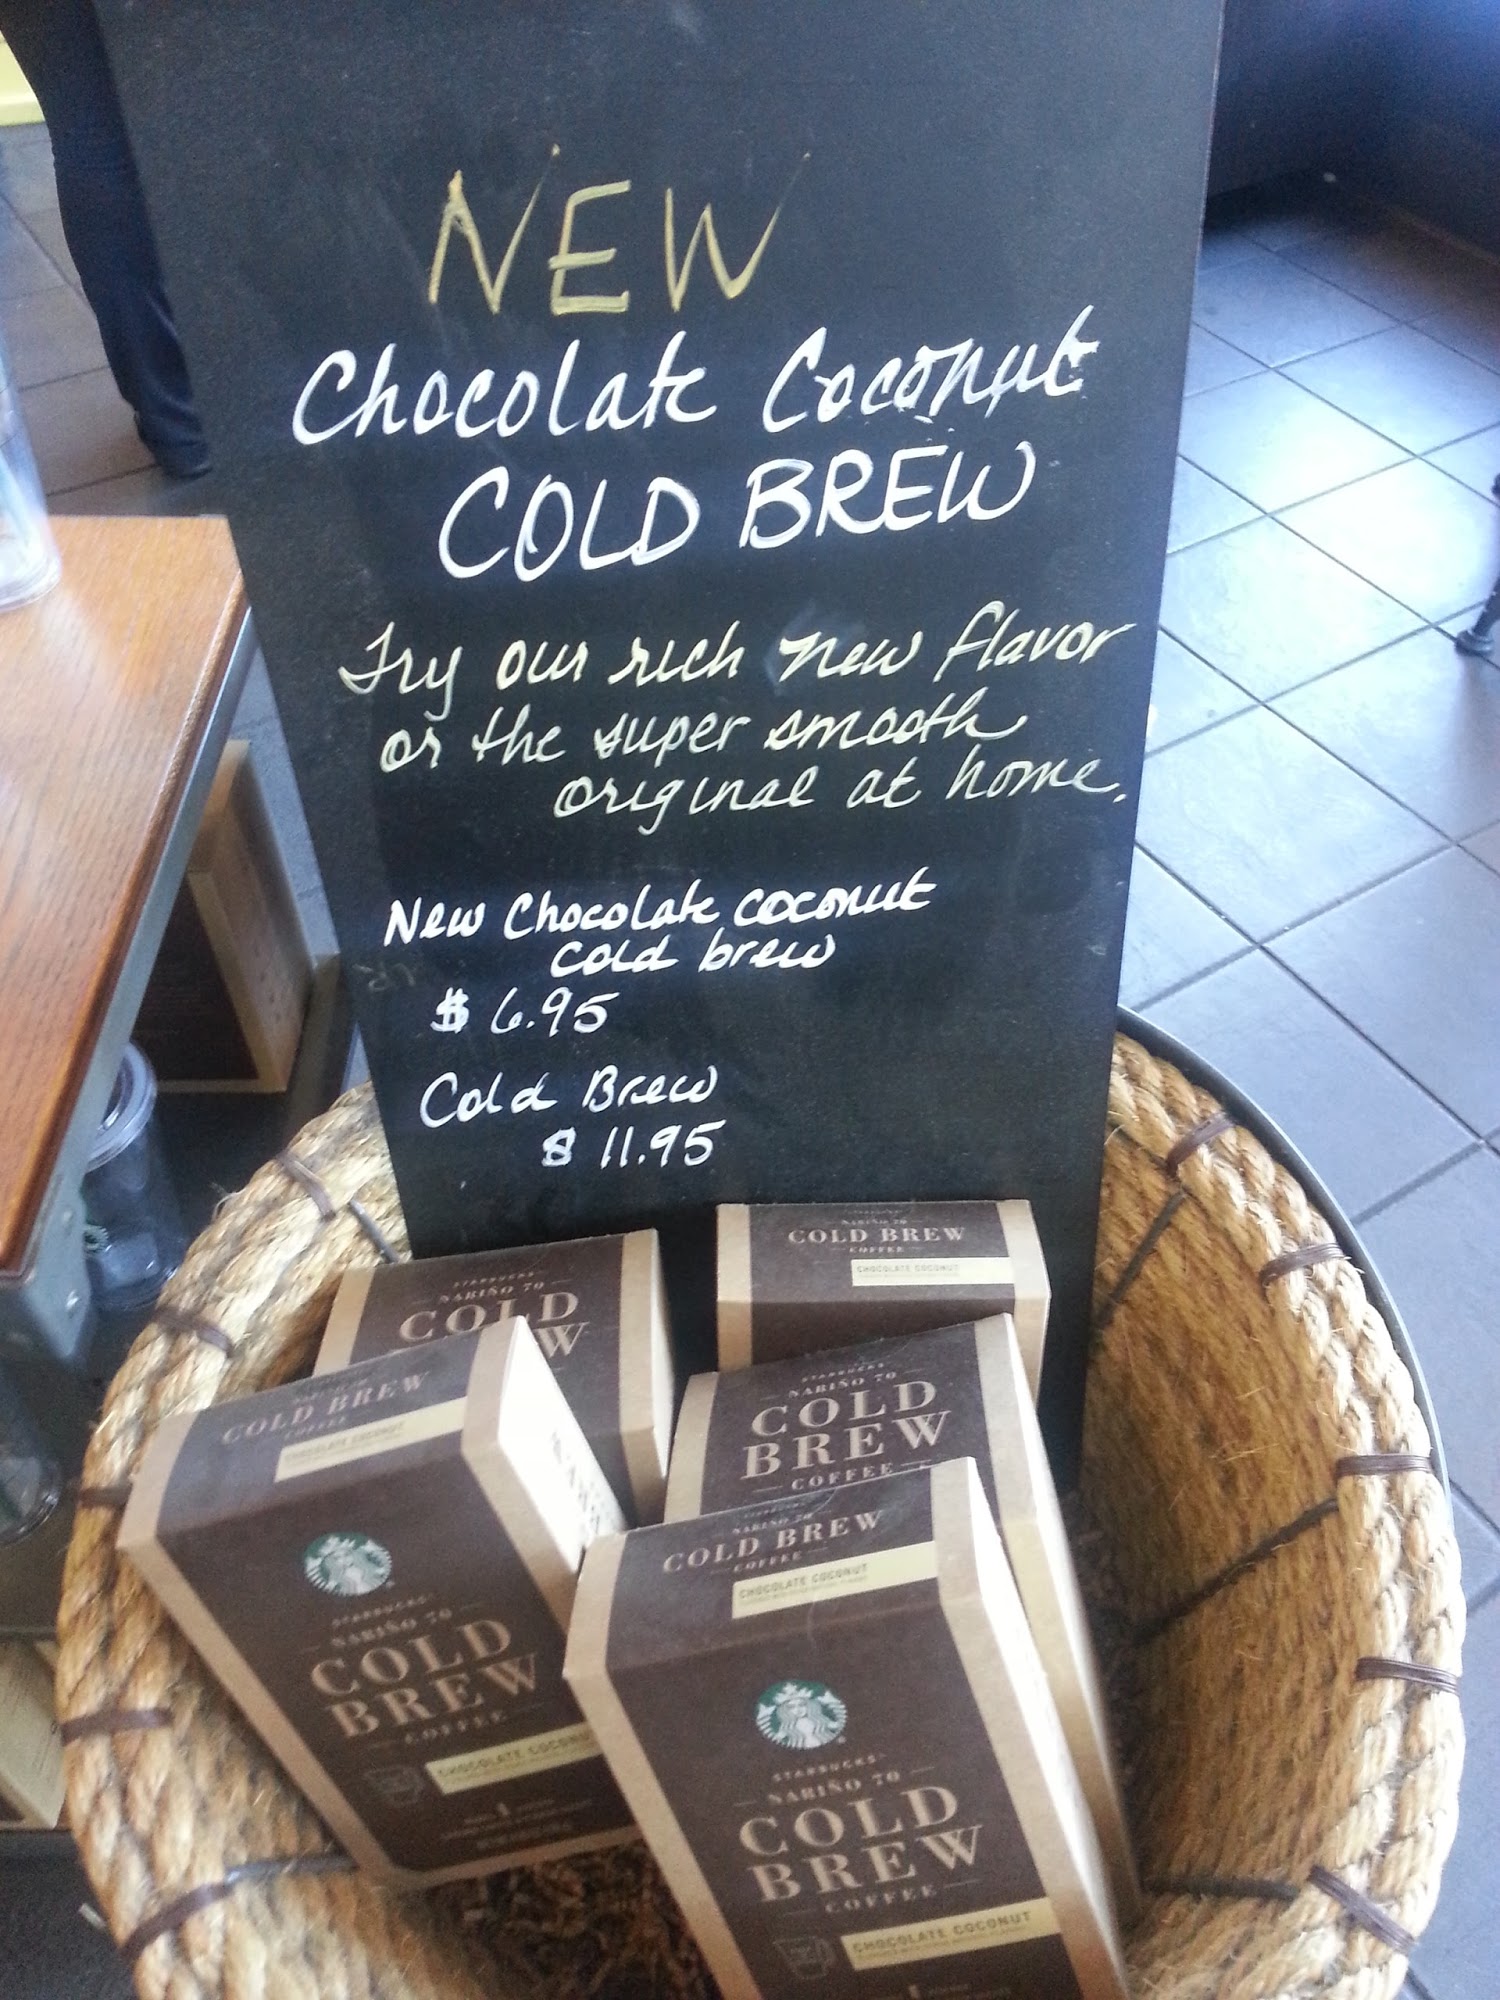 NEW
Chocolate Coconut
COLD BREW
Try our rich new flavor
or the super smooth
original at home.
New Chocolate coconut
cold brew
$ 6.95
Cold Brew
$ 11.95
NARIÑO 70
COLD BREW
COFFEE
CHOCOLATE COCONUT
STARBUCKS
NARIÑO 70
COLD
STARBUCKS
NARIÑO 70
COLD
BREW
COFFEE
COLD BREW
COFFEE
CHOCOLATE COCONUT
STARBUCKS
NARIÑO 70
COLD
BREW
COFFEE
CHOCOLATE
NARIÑO 70
COLD BREW
COFFEE
CHOCOLATE COCONUT
STARBUCKS
NARIÑO 70
COLD
BREW
COFFEE
CHOCOLATE COCONUT